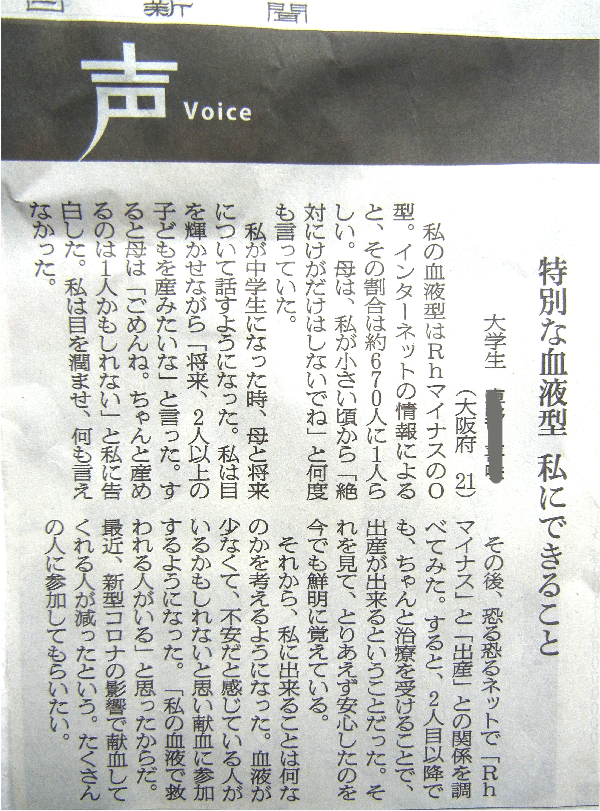 日新聞
声 Voice
特別な血液型 私にできること
大学生
(大阪府 21)
私の血液型はＲｈマイナスのＯ
型。インターネットの情報による
と、その割合は約670人に1人ら
しい。母は、私が小さい頃から「絶
対にけがだけはしないでね」と何度
も言っていた。
私が中学生になった時、母と将来
について話すようになった。私は目
を輝かせながら「将来、2人以上の
子どもを産みたいな」と言った。す
ると母は「ごめんね。ちゃんと産め
るのは1人かもしれない」と私に告
白した。私は目を潤ませ、何も言え
なかった。
その後、恐る恐るネットで「Ｒｈ
マイナス」と「出産」との関係を調
べてみた。すると、2人目以降で
も、ちゃんと治療を受けることで、
出産が出来るということだった。そ
れを見て、とりあえず安心したのを
今でも鮮明に覚えている。
それから、私に出来ることは何な
のかを考えるようになった。血液が
少なくて、不安だと感じている人が
いるかもしれないと思い献血に参加
するようになった。「私の血液で救
われる人がいる」と思ったからだ。
最近、新型コロナの影響で献血して
くれる人が減ったという。たくさん
の人に参加してもらいたい。